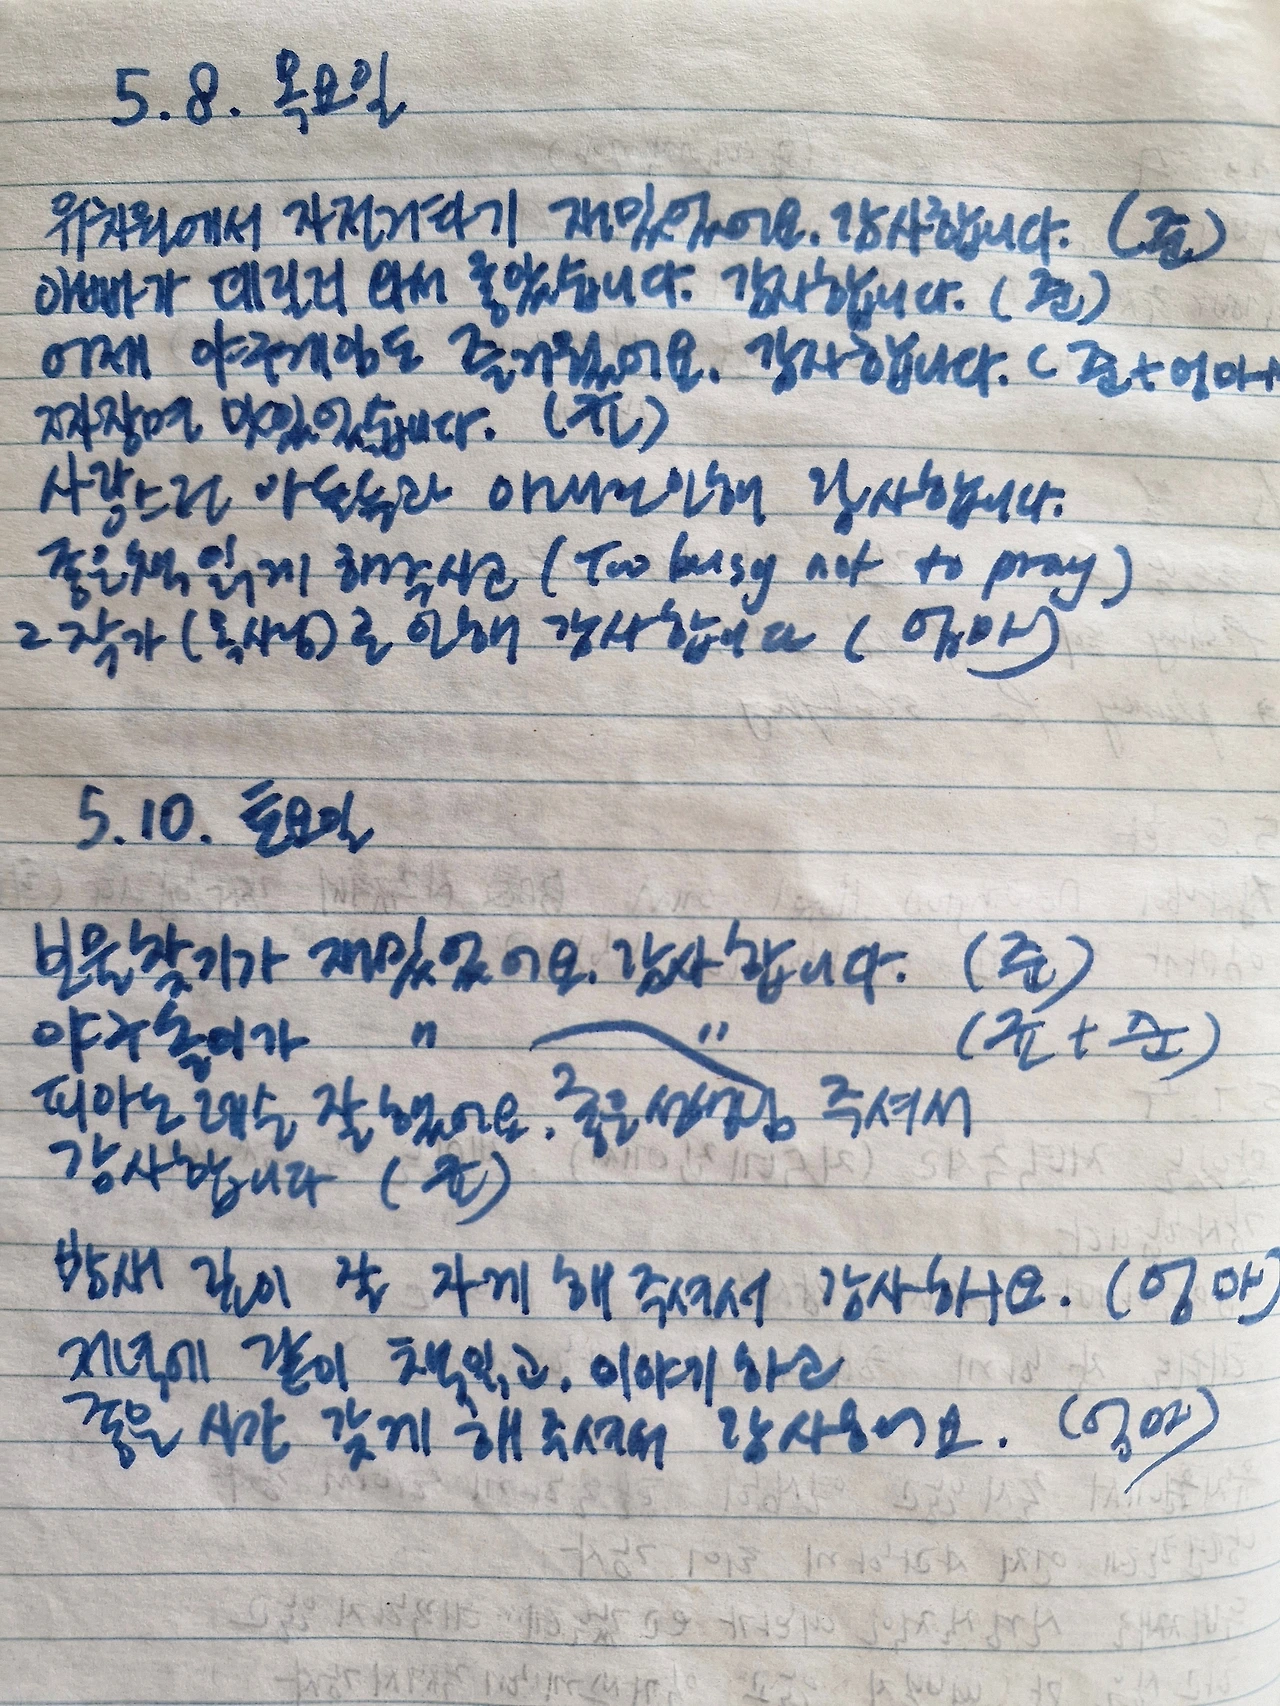 5.8. 목요일
유치원에서 자전거타기 재밌있어요. 감사합니다. (준)
아빠가 데릴러 와서 좋았습니다. 감사합니다. (준)
어제 야구게임도 즐거웠어요. 감사합니다. (준+엄마+
짜장면 맛있있습니다. (준)
사랑스런 아들들과 아내로 인해 감사합니다.
좋은책 읽게 해주시고 (Too busy not to pray)
그 작가 (목사님)로 인해 감사합니다 (엄마)
5.10. 토요일
보물찾기가 재밌었어요. 감사합니다. (준)
야구놀이가 " " (윤+준)
피아노 레슨 잘했어요. 좋은선생님 주셔서
감사합니다 (준)
밤새 깊이 잘 자게 해 주셔서 감사해요. (엄마)
저녁에 같이 책읽고. 이야기하고
좋은 시간 갖게 해주셔서 감사해요. (엄마)